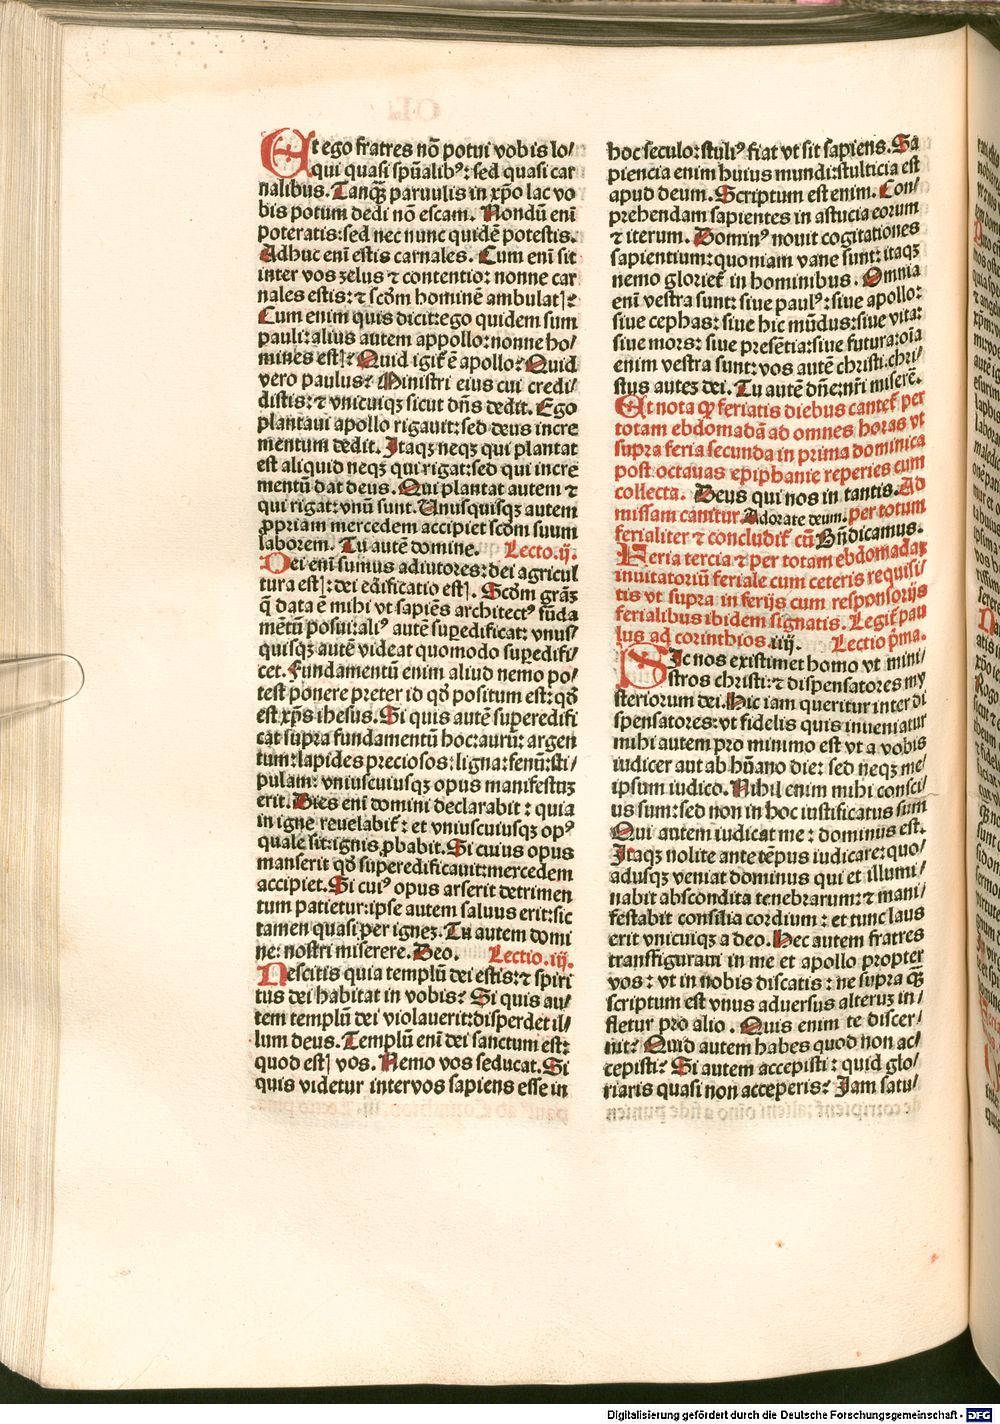 Et ego fratres nõ potui vobis lo/
qui quasi spũalibꝰ: sed quasi car
nalibus. Tanqȝ paruulis in xp̃o lac vo
bis potum dedi nõ escam. Nondũ enĩ
poteratis: sed nec nunc quidẽ potestis.
Adhuc enĩ estis carnales. Cum enĩ sit
inter vos zelus ⁊ contentio: nonne car
nales estis: ⁊ scd̃m hominẽ ambulatꝭ?
Cum enim quis dicit: ego quidem sum
pauli: alius autem appollo: nonne ho/
mines estꝭ? Quid igit̃ ẽ apollo? Quid
vero paulus? Ministri eius cui credi/
distis: ⁊ vnicuiqȝ sicut dñs dedit. Ego
plantaui apollo rigauit: sed deus incre
mentum dedit. Itaqȝ neqȝ qui plantat
est aliquid neqȝ qui rigat: sed qui incre
mentũ dat deus. Qui plantat autem ⁊
qui rigat: vnũ sunt. Vnusquisqȝ autem
ꝓpriam mercedem accipiet scd̃m suum
laborem. Tu autẽ domine. Lectio.ij.
Dei enĩ sumus adiutores: dei agricul
tura estꝭ: dei edificatio estꝭ. Scd̃m grãȝ
q̃ data ẽ mihi vt sapiẽs architectꝰ fũda
mẽtũ posui: aliꝰ autẽ suꝑedificat: vnus/
quisqȝ autẽ videat quomodo suꝑedifi/
cet. Fundamentũ enim aliud nemo po/
test ponere preter id qd̃ positum est: qd̃
est xp̃s ihesus. Si quis autẽ superedifi
cat supra fundamentũ hoc: aurũ: argen
tum: lapides preciosos: ligna: fenũ: sti/
pulam: vniuscuiusqȝ opus manifestuȝ
erit. Dies enĩ domini declarabit: quia
in igne reuelabit̃: et vniuscuiusqȝ opꝰ
quale sit: ignis ꝓbabit. Si cuius opus
manserit qd̃ superedificauit: mercedem
accipiet. Si cuiꝰ opus arserit detrimen
tum patietur: ipse autem saluus erit: sic
tamen quasi per igneȝ. Tu autem domi
ne: nostri miserere. Deo. Lectio.iij.
Nescitis quia templũ dei estis: ⁊ spiri
tus dei habitat in vobis? Si quis au/
tem templũ dei violauerit: disperdet il/
lum deus. Templũ enĩ dei sanctum est:
quod estꝭ vos. Nemo vos seducat. Si
quis videtur inter vos sapiens esse in
hoc seculo: stultꝰ fiat vt sit sapiens. Sa
piencia enim huius mundi: stulticia est
apud deum. Scriptum est enim. Con/
prehendam sapientes in astucia eorum
⁊ iterum. Dominꝰ nouit cogitationes
sapientium: quoniam vane sunt: itaqȝ
nemo gloriet̃ in hominibus. Omnia
enĩ vestra sunt: siue paulꝰ: siue apollo:
siue cephas: siue hic mũdus: siue vita:
siue mors: siue presẽtia: siue futura: oĩa
enim vestra sunt: vos autẽ christi. chri/
stus auteȝ dei. Tu autẽ dñe: nr̃i miserẽ.
Et nota ꝙ feriatis diebus cantet̃ per
totam ebdomadã ad omnes horas vt
supra feria secunda in prima dominica
post octauas epiphanie reperies cum
collecta. Deus qui nos in tantis. Ad
missam canitur. Adorate deum. per totum
ferialiter ⁊ concludit̃ cũ Bñdicamus.
Feria tercia ⁊ per totam ebdomadaȝ
inuitatoriũ feriale cum ceteris requisi/
tis vt supra in ferijs cum responsorijs
ferialibus ibidem signatis. Legit̃ pau
lus ad corinthios .iiij. Lectio p̃ma.
Sic nos existimet homo vt mini/
stros christi: ⁊ dispensatores my
steriorum dei. Hic iam queritur inter di
spensatores: vt fidelis quis inueniatur
mihi autem pro minimo est vt a vobis
iudicer aut ab hũano die: sed neqȝ me/
ipsum iudico. Nihil enim mihi consci/
us sum: sed non in hoc iustificatus sum
Qui autem iudicat me: dominus est.
Itaqȝ nolite ante tẽpus iudicare: quo/
adusqȝ veniat dominus qui et illumi/
nabit abscondita tenebrarum: ⁊ mani/
festabit consilia cordium: et tunc laus
erit vnicuiqȝ a deo. Hec autem fratres
transfiguraui in me et apollo propter
vos: vt in nobis discatis: ne supra qȝ̃
scriptum est vnus aduersus alteruȝ in/
fletur pro alio. Quis enim te discer/
nit? Quid autem habes quod non ac/
cepisti? Si autem accepisti: quid glo/
riaris quasi non acceperis? Iam satu/
Digitalisierung gefördert durch die Deutsche Forschungsgemeinschaft - DFG